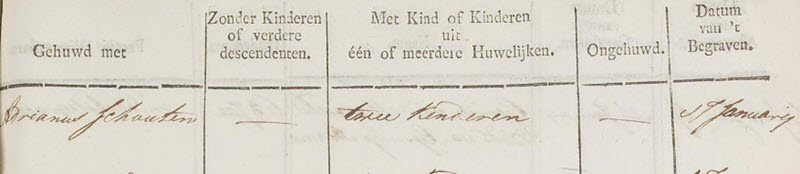 Gehuwd met
Zonder Kinderen
of verdere
descendenten.
Met Kind of Kinderen
uit
één of meerdere Huwelijken.
Ongehuwd.
Datum
van 't
Begraven.
Arianus Schouten — twee kinderen — Januarij